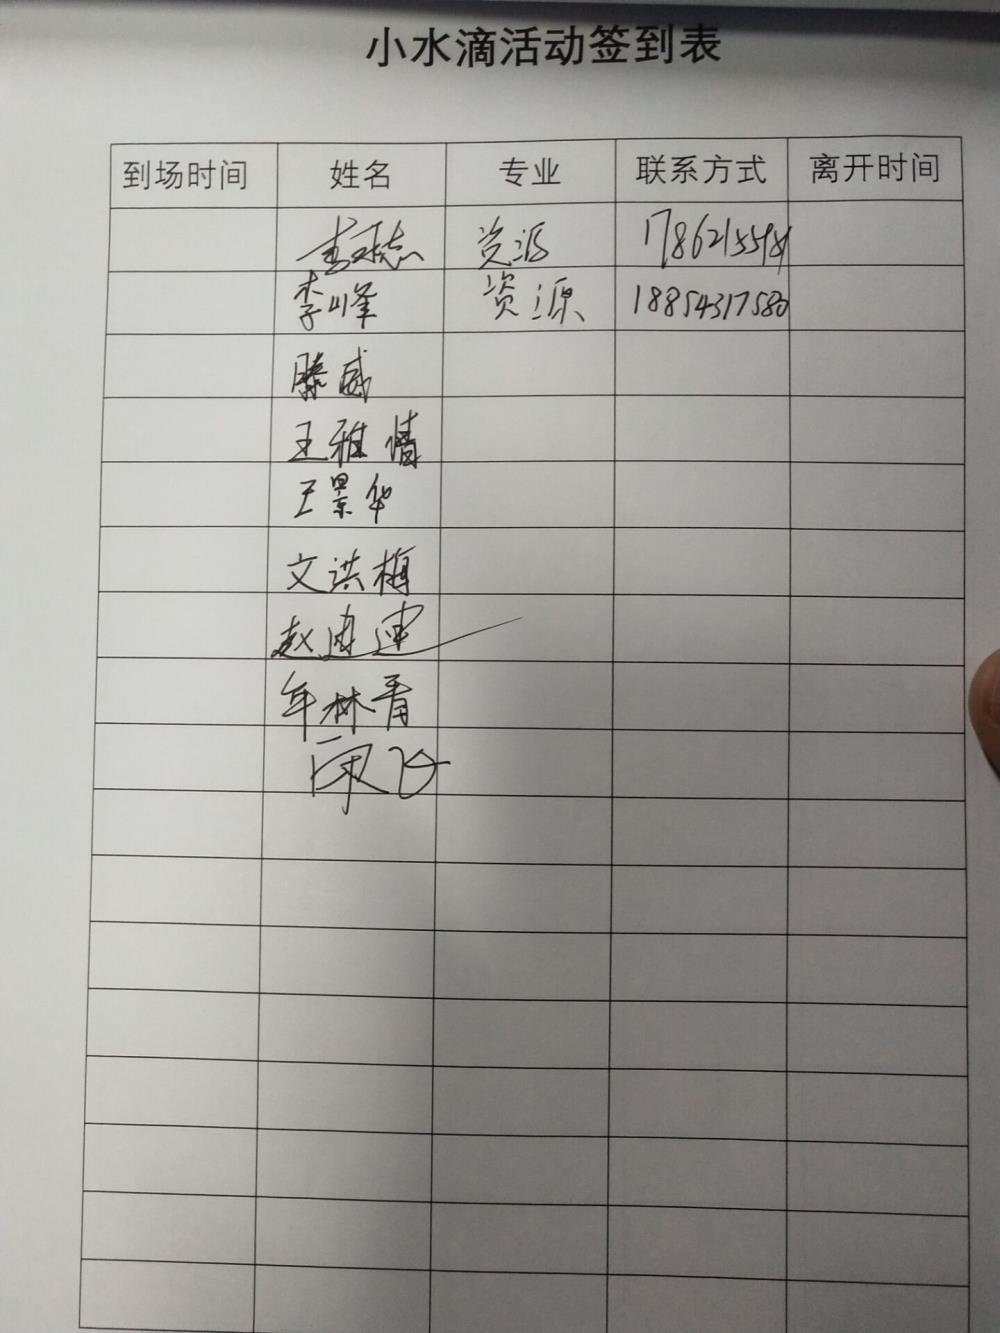 小水滴活动签到表
到场时间 姓名 专业 联系方式 离开时间
资源
李峰 资源 18854317580
滕威
王雅倩
王景华
文洪梅
赵
牟林青
宋飞